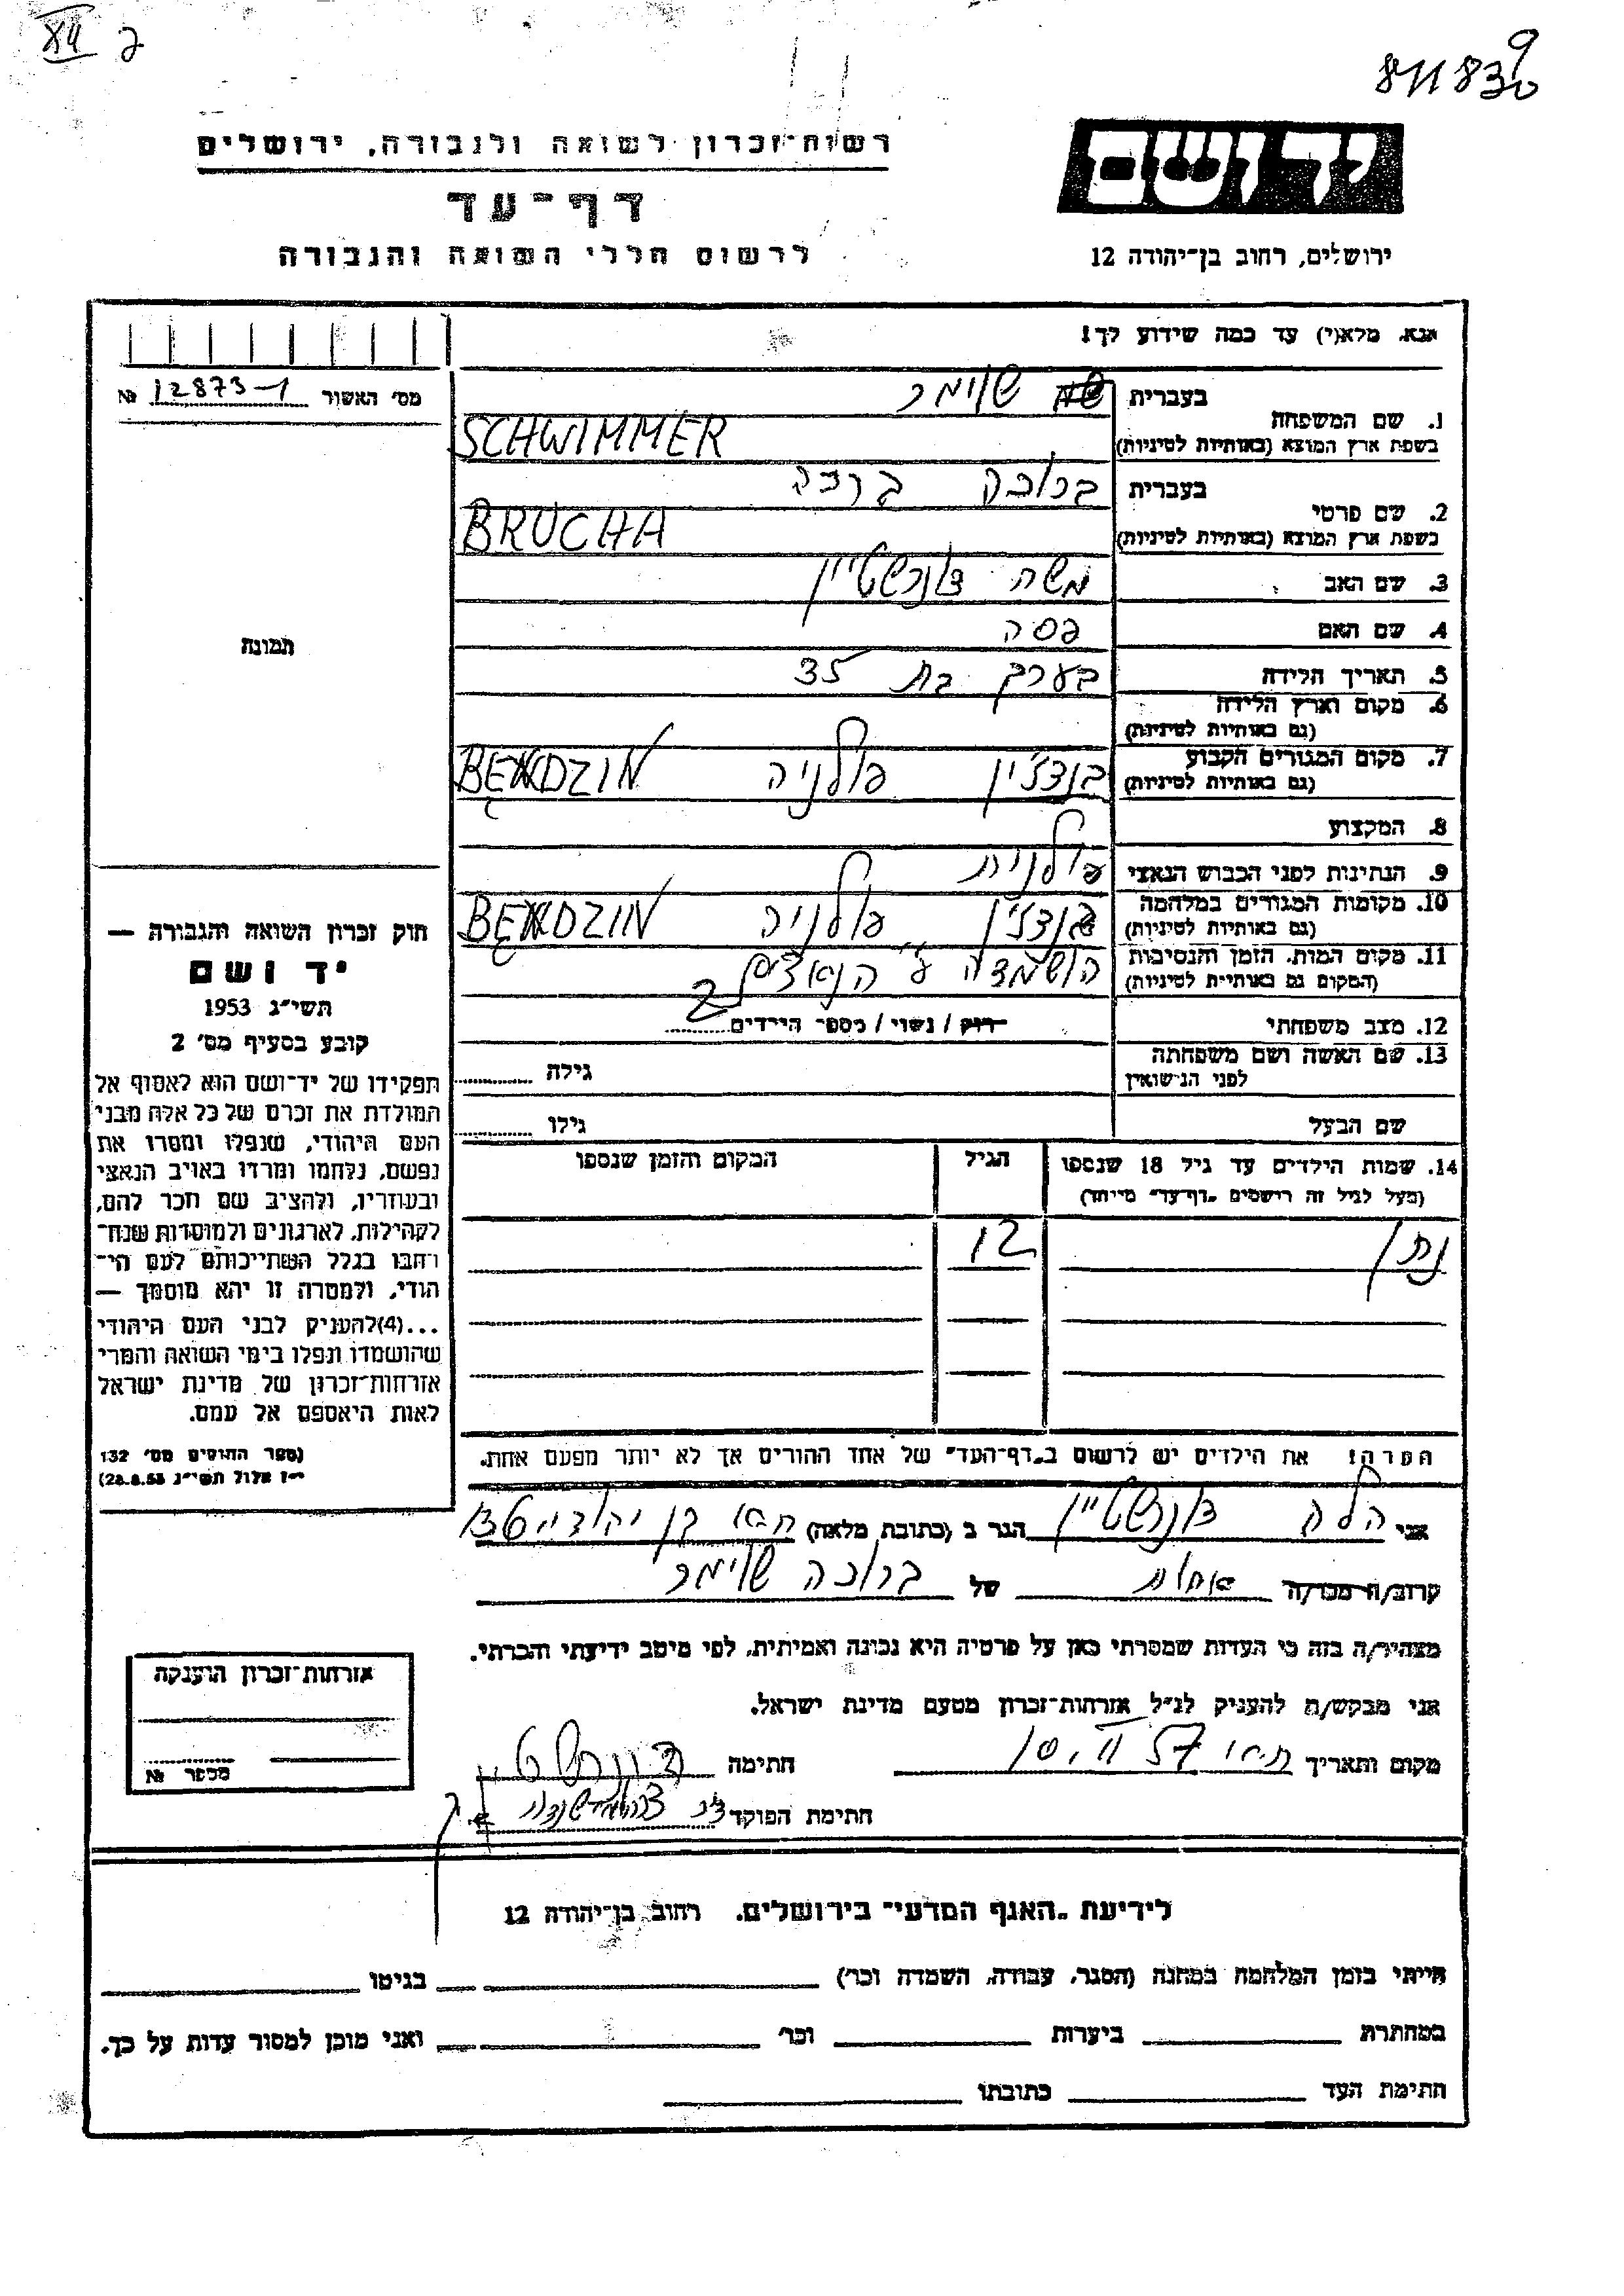 XII
811830
רשות־זכרון לשואה ולגבורה, ירושלים
יד ושם
דף־עד
לרשום חללי השואה והגבורה
ירושלים, רחוב בן־יהודה 12
אנא, מלא(י) עד כמה שידוע לך!
מס׳ האשור 12873-1 №
1. שם המשפחה
בעברית שוימר
בשפת ארץ המוצא (באותיות לטיניות) SCHWIMMER
2. שם פרטי
בעברית ברוכה
בשפת ארץ המוצא (באותיות לטיניות) BRUCHA
3. שם האב משה
4. שם האם פסה
5. תאריך הלידה בערך בת 35
6. מקום וארץ הלידה
(גם באותיות לטיניות)
7. מקום המגורים הקבוע בנדז׳ין פולניה BENDZIN
(גם באותיות לטיניות)
8. המקצוע
9. הנתינות לפני הכבוש הנאצי פולנית
10. מקומות המגורים במלחמה בנדז׳ין פולניה BENDZIN
(גם באותיות לטיניות)
11. מקום המות, הזמן והנסיבות הושמדה ע״י הנאצים
(המקום גם באותיות לטיניות)
12. מצב משפחתי רוק / נשוי / מספר הילדים 2
13. שם האשה ושם משפחתה
לפני הנישואין גילה
שם הבעל גילו
14. שמות הילדים עד גיל 18 שנספו הגיל המקום והזמן שנספו
(מעל לגיל זה רושמים „דף־עד״ מיוחד)
נתן 12
הערה! את הילדים יש לרשום ב„דף־העד״ של אחד ההורים אך לא יותר מפעם אחת.
תמונה
חוק זכרון השואה והגבורה —
יד ושם
תשי״ג 1953
קובע בסעיף מס׳ 2
תפקידו של יד־ושם הוא לאסוף אל
המולדת את זכרם של כל אלה מבני
העם היהודי, שנפלו ומסרו את
נפשם, נלחמו ומרדו באויב הנאצי
ובעוזריו, ולהציב שם וזכר להם,
לקהילות, לארגונים ולמוסדות שנח־
רבו בגלל השתייכותם לעם הי־
הודי, ולמטרה זו יהא מוסמך —
...(4)להעניק לבני העם היהודי
שהושמדו ונפלו בימי השואה והמרי
אזרחות־זכרון של מדינת ישראל
לאות היאספם אל עמם.
(ספר החוקים מס׳ 132
י״ז אלול תשי״ג 28.8.53)
אני הלה הגר ב (כתובת מלאה) בן יהודה
קרוב/ה מכר/ה אחות של ברוכה שוימר
מצהיר/ה בזה כי העדות שמסרתי כאן על פרטיה היא נכונה ואמיתית, לפי מיטב ידיעתי והכרתי.
אני מבקש/ת להעניק לנ״ל אזרחות־זכרון מטעם מדינת ישראל.
מקום ותאריך 10.II 57 חתימה
חתימת הפוקד
אזרחות־זכרון הוענקה
מספר №
לידיעת „האגף המדעי״ בירושלים, רחוב בן־יהודה 12
הייתי בזמן המלחמה במחנה (הסגר, עבודה, השמדה וכו׳) בגיטו
במחתרת ביערות וכו׳ ואני מוכן למסור עדות על כך.
חתימת העד כתובתו